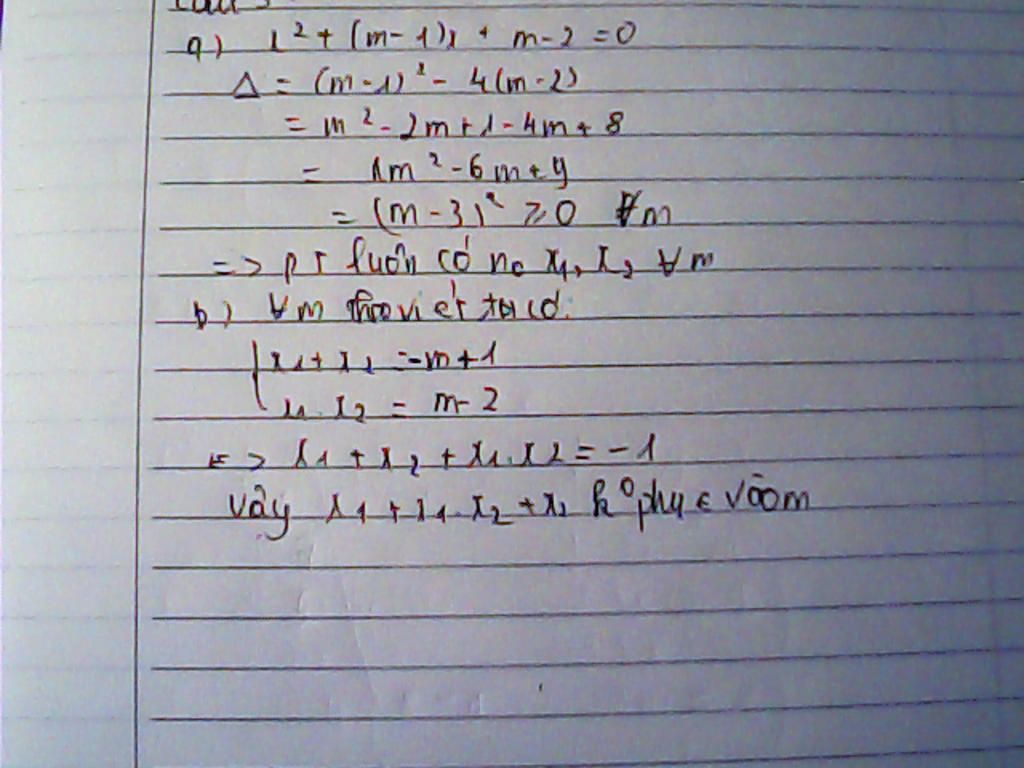 a) x² + (m-1)x + m-2 = 0
Δ = (m-1)² - 4(m-2)
= m² - 2m + 1 - 4m + 8
= 1m² - 6m + 9
= (m-3)² ≥ 0 ∀m
=> PT luôn có no x₁, x₂ ∀m
b) ∀m theo viét ta có:
x₁ + x₂ = -m+1
x₁.x₂ = m-2
<=> x₁ + x₂ + x₁.x₂ = -1
Vậy x₁ + x₁.x₂ + x₂ k° phụ ∈ vào m